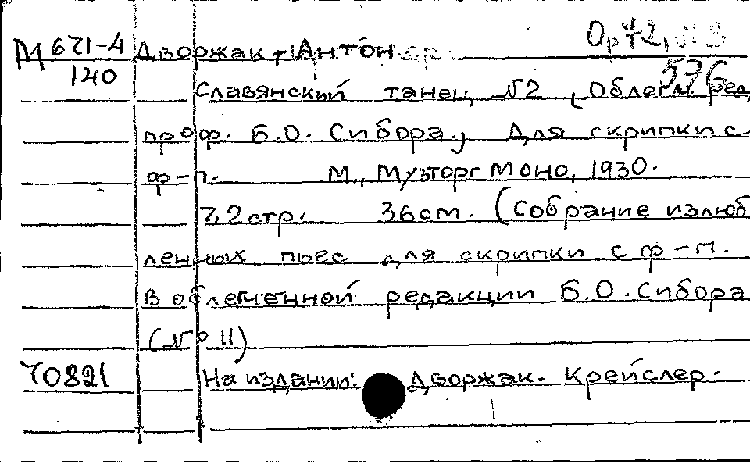 М 671-4 Дворжак, Антон Ор 72,
140 576
Славянский танец √2 (Облегч ред
проф. Б.О. Сибора., Для скрипки с
ф-п. М., Музторг Моно, 1930.
7,2 стр. 36 см. (Собрание излюб
ленных пьес для скрипки с ф-п.
В облегченной редакции Б.О. Сибора
(№ 11)
70821 На издании: Дворжак. Крейслер.